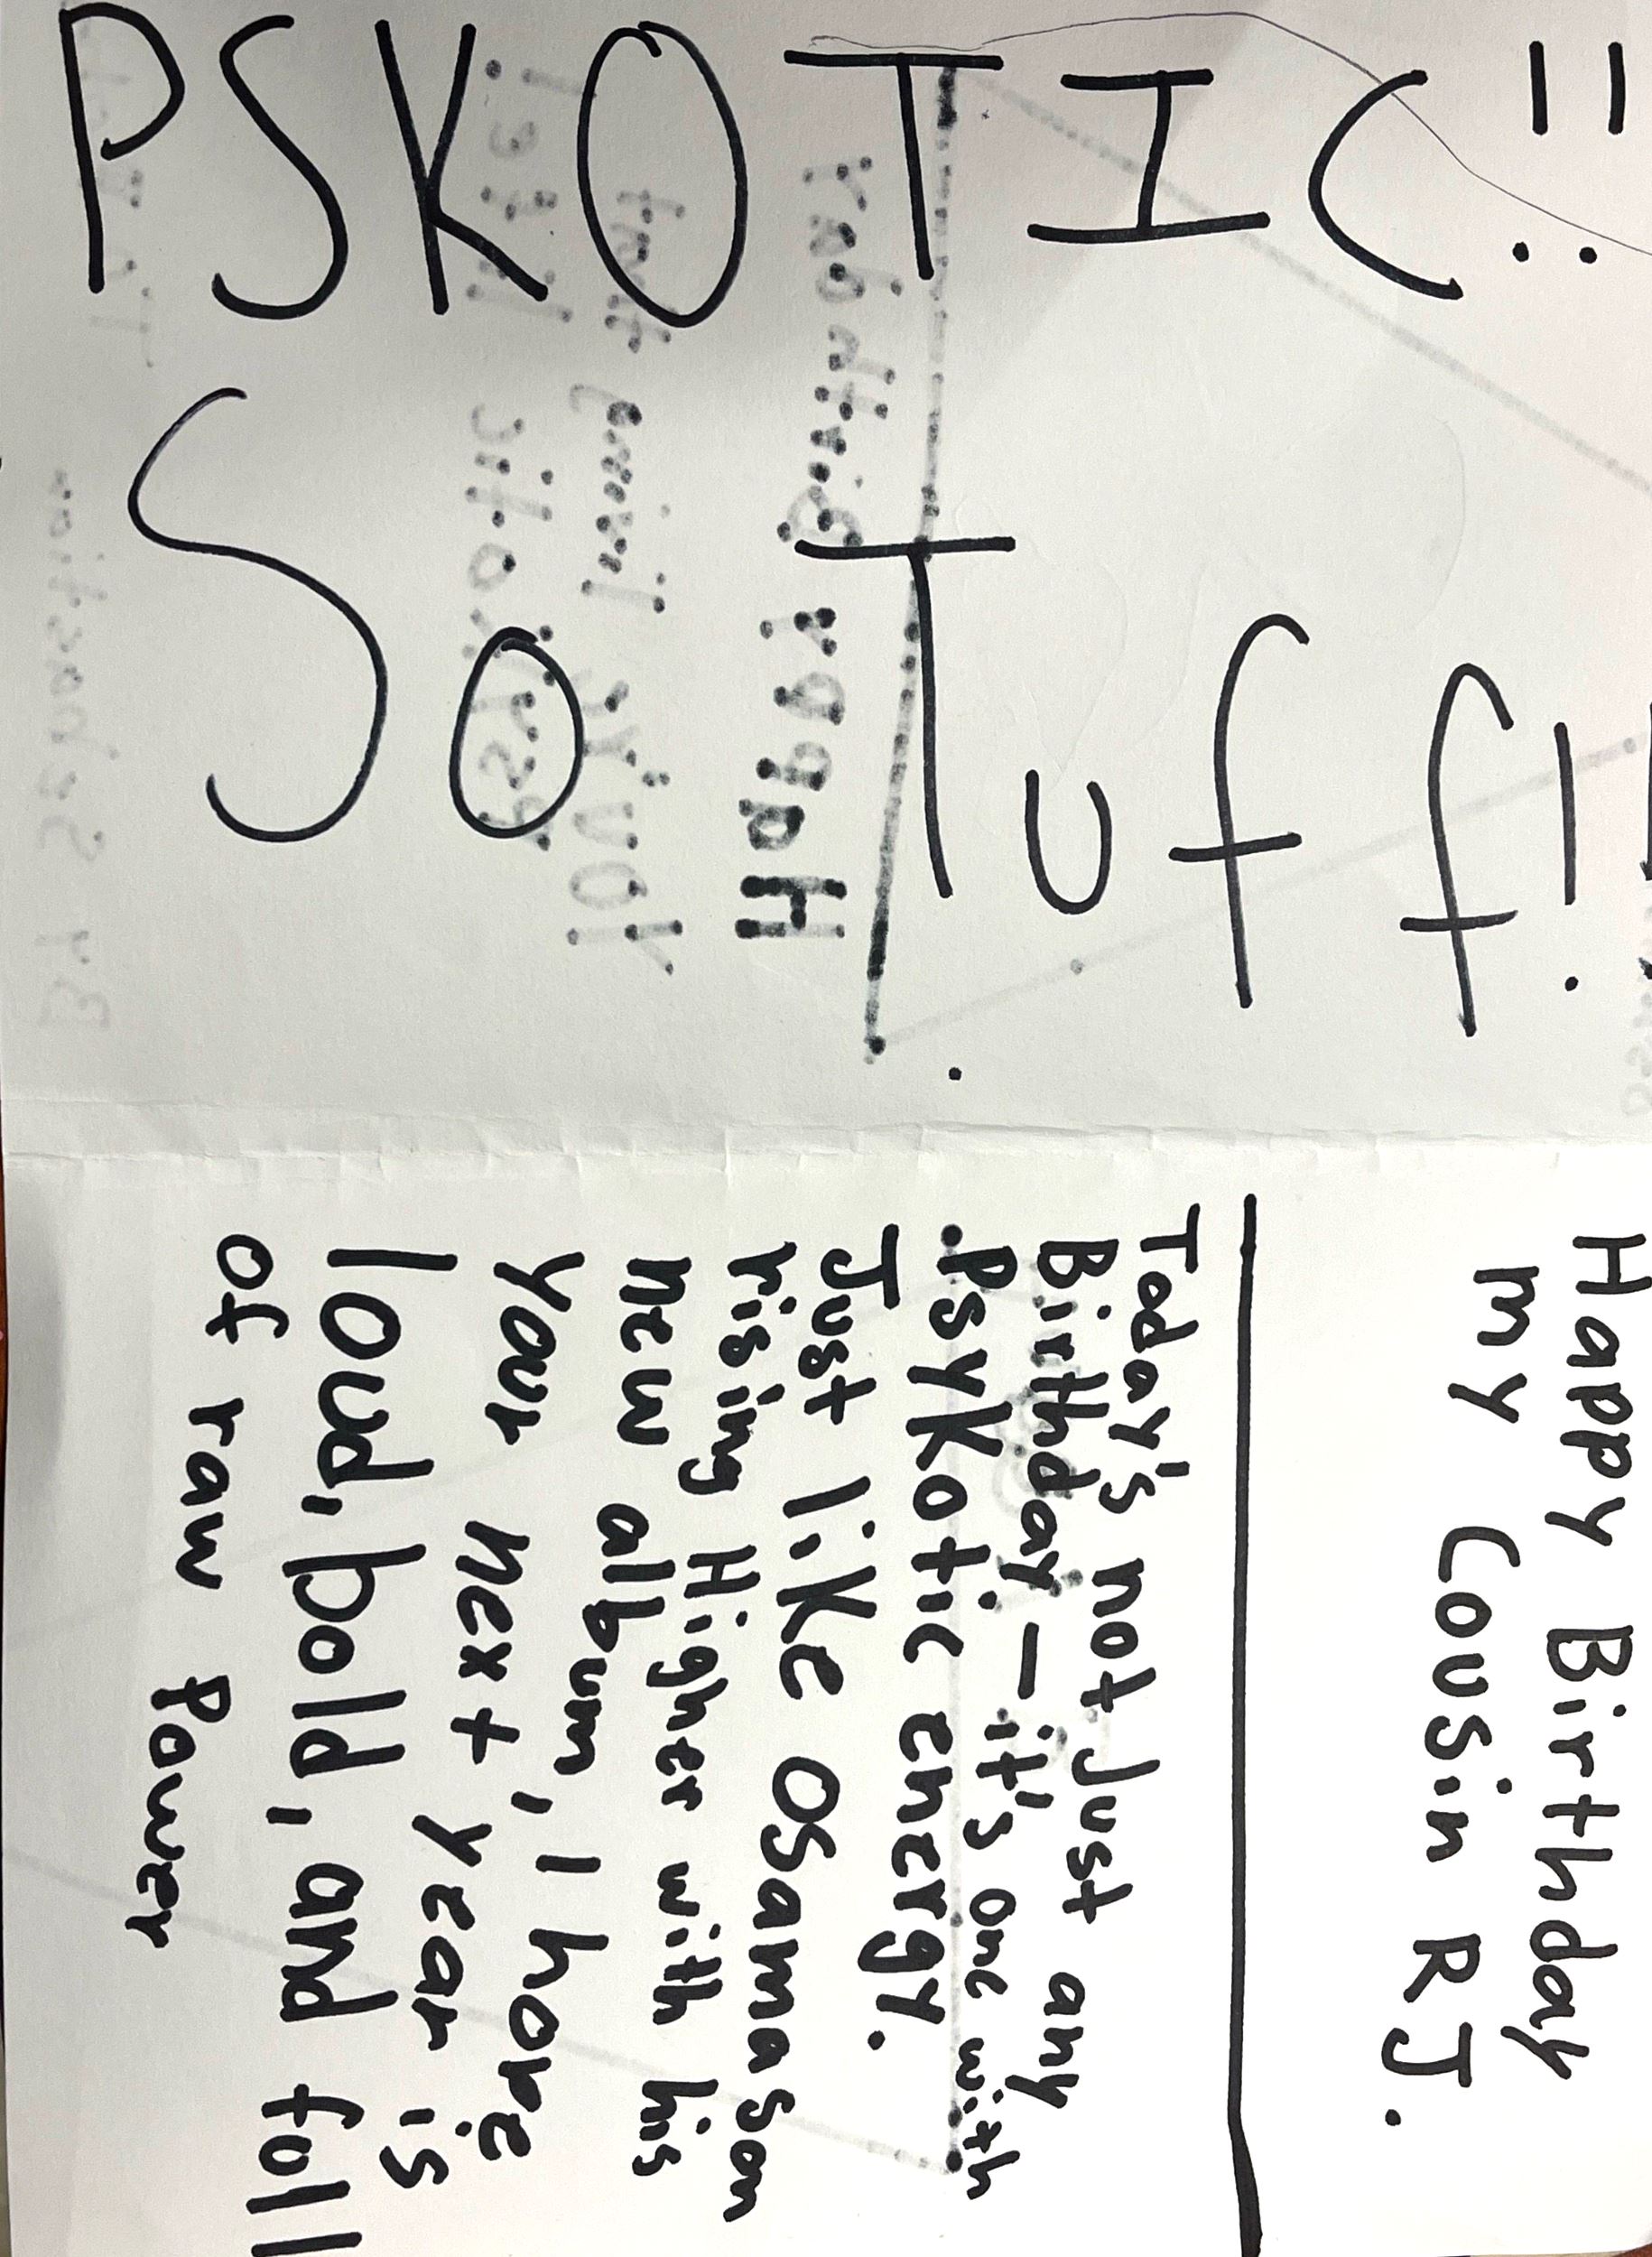 PSKOTIC!!
So Tuff!!
Happy Birthday
my Cousin RJ.
Today's not Just any
Birthday — it's one with
Psykotic energy.
Just like Osamason
rising Higher with his
new album, I hope
your next year is
loud, bold, and foll
of raw Power